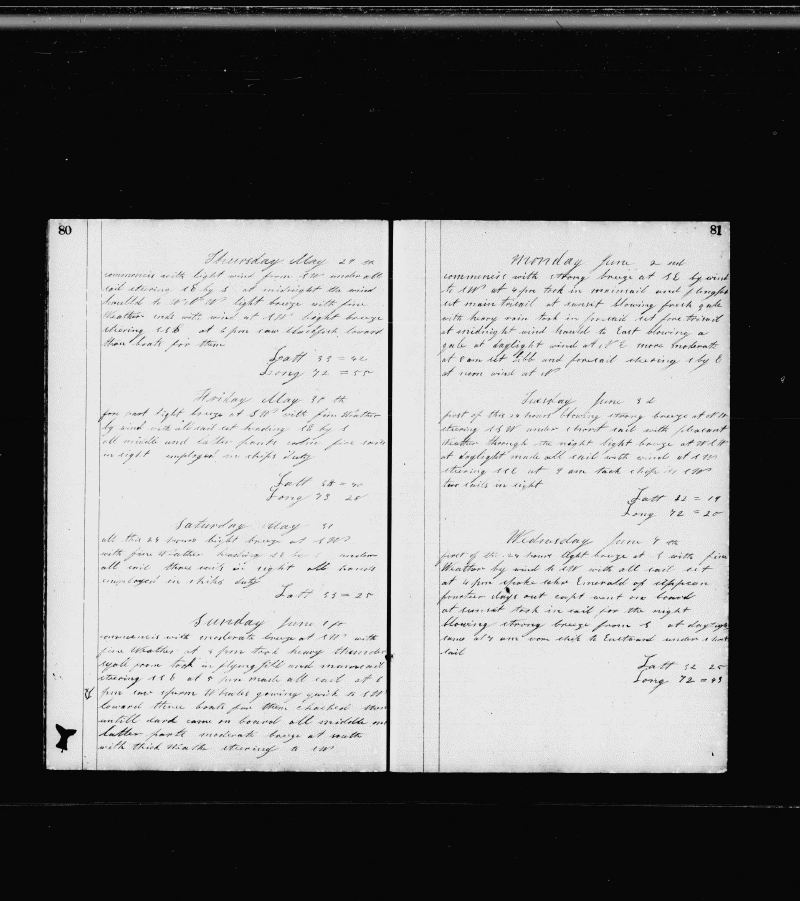 80
Thursday May 29 th
commences with light wind from SW under all
sail steering SE by S at midnight the wind
hauled to W N W light breeze with fine
Weather ends with wind at SW light breeze
steering SSE at 6 pm saw blackfish lowerd
three boats for them
Latt 33 = 42
Long 72 = 55
Friday May 30 th
first part light breeze at SW with fine Weather
by wind with all sail set heading SE by S
all middle and latter parts calm five sails
in sight employed in ships duty
Latt
Long 73 20
Saturday May 31
all this 24 hours light breeze at SW
with fine Weather heading SE by under
all sail three sails in sight all hands
employed in ships duty
Latt 33 = 25
Sunday June 1st
commences with moderate breeze at SW with
fine Weather at pm took heavy thunder
squall from took in flying jibb and mainsail
steering SSE at pm made all sail at 6
pm saw sperm Whales gowing quick to SW
lowerd three boats for them chased them
untill dark came on board all middle and
latter parts moderate breeze at south
with thick Weather steering SW
81
Monday June 2 nd
commences with strong breeze at SE by wind
to SW at 4 pm took in mainsail and flengjib
set main trisail at sunset blowing fresh gale
with heavy rain took in foresail set fore trisail
at midnight wind hauld to East blowing a
gale at daylight wind at NE more moderate
at 8 am set jibb and foresail steering S by E
at noon wind at N
Tuesday June 3 d
first of this 24 hours blowing strong breeze at NW
steering SSW under short sail with pleasant
Weather through the night light breeze at WSW
at daylight made all sail with wind at SW
steering SSE at 9 am tack ship to SW
two sails in sight
Latt 32 = 19
Long 72 = 20
Wednesday June 4 th
first of the 24 hours light breeze at S with fine
Weather by wind to SW with all sail set
at 4 pm spoke schr Emerald of
fourteen days out capt went on board
at sunset took in sail for the night
blowing strong breeze from S at daylight
same at 7 am ware ship to Eastward under short
sail
Latt 32 25
Long 72 = 43